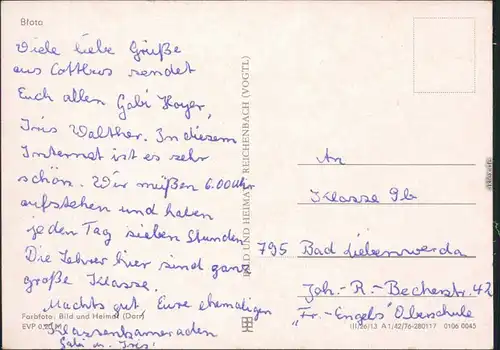 Błota
Viele liebe Grüße
aus Cottbus sendet
Euch allen Gabi Hoyer,
Iris Walther. In diesem
Internat ist es sehr
schön. Wir müßen 6.00 Uhr
aufstehen und haben
jeden Tag sieben Stunden.
Die Lehrer hier sind ganz
große Klasse.
Machts gut Eure ehemaligen
Klassenkameraden
Gabi u. Iris!
Farbfoto: Bild und Heimat (Dorr)
EVP 0,20 M
BILD UND HEIMAT REICHENBACH (VOGTL)
An
Klasse 9b
795 Bad Liebenwerda
Joh.-R.-Becherstr. 42
"Fr.-Engels" Oberschule
III/26/13 A 1/42/76-280117 01 06 0045